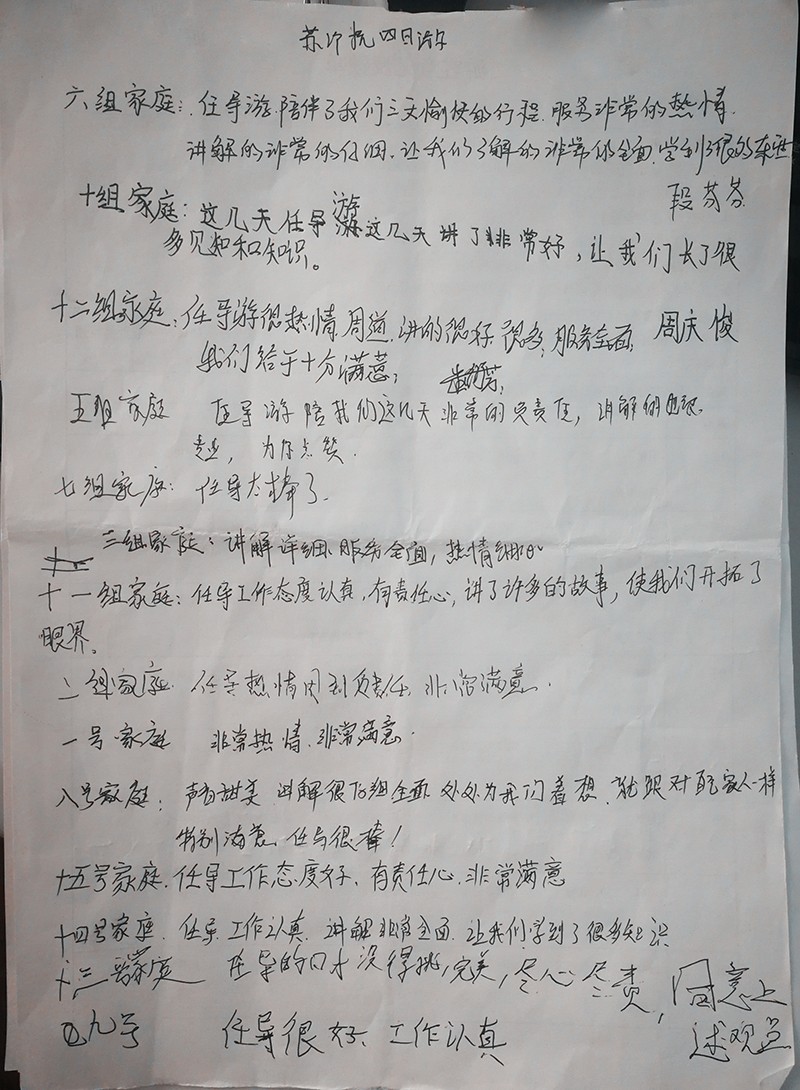 苏沪杭四日游
六组家庭:任导游陪伴了我们三天愉快的行程.服务非常的热情.
讲解的非常的仔细.让我们了解的非常的全面.学到了很多东西
段芬芬
十组家庭:这几天任导游这几天讲了非常好,让我们长了很
多见知和知识。
十二组家庭:任导游很热情周道.讲的很好很多,服务全面,周庆俊
我们给于十分满意,
五组家庭 任导游陪我们这几天非常的负责任,讲解的也很
为你点赞.
七组家庭:任导太棒了.
三组家庭:讲解详细、服务全面,热情细心
十一组家庭:任导工作态度认真,有责任心,讲了许多的故事,使我们开拓了
眼界。
二组家庭.任导热情周到负责任.非常满意.
一号家庭 非常热情.非常满意.
八号家庭:声音甜美.讲解很仔细全面.处处为我们着想.就跟对自己家人一样
特别满意.任导很棒!
十五号家庭.任导工作态度好、有责任心.非常满意
十四号家庭.任导.工作认真.讲解非常全面.让我们学到了很多知识
十三号家庭 任导的口才没得挑,完美,尽心尽责,同意上
述观点
九号 任导很好、工作认真